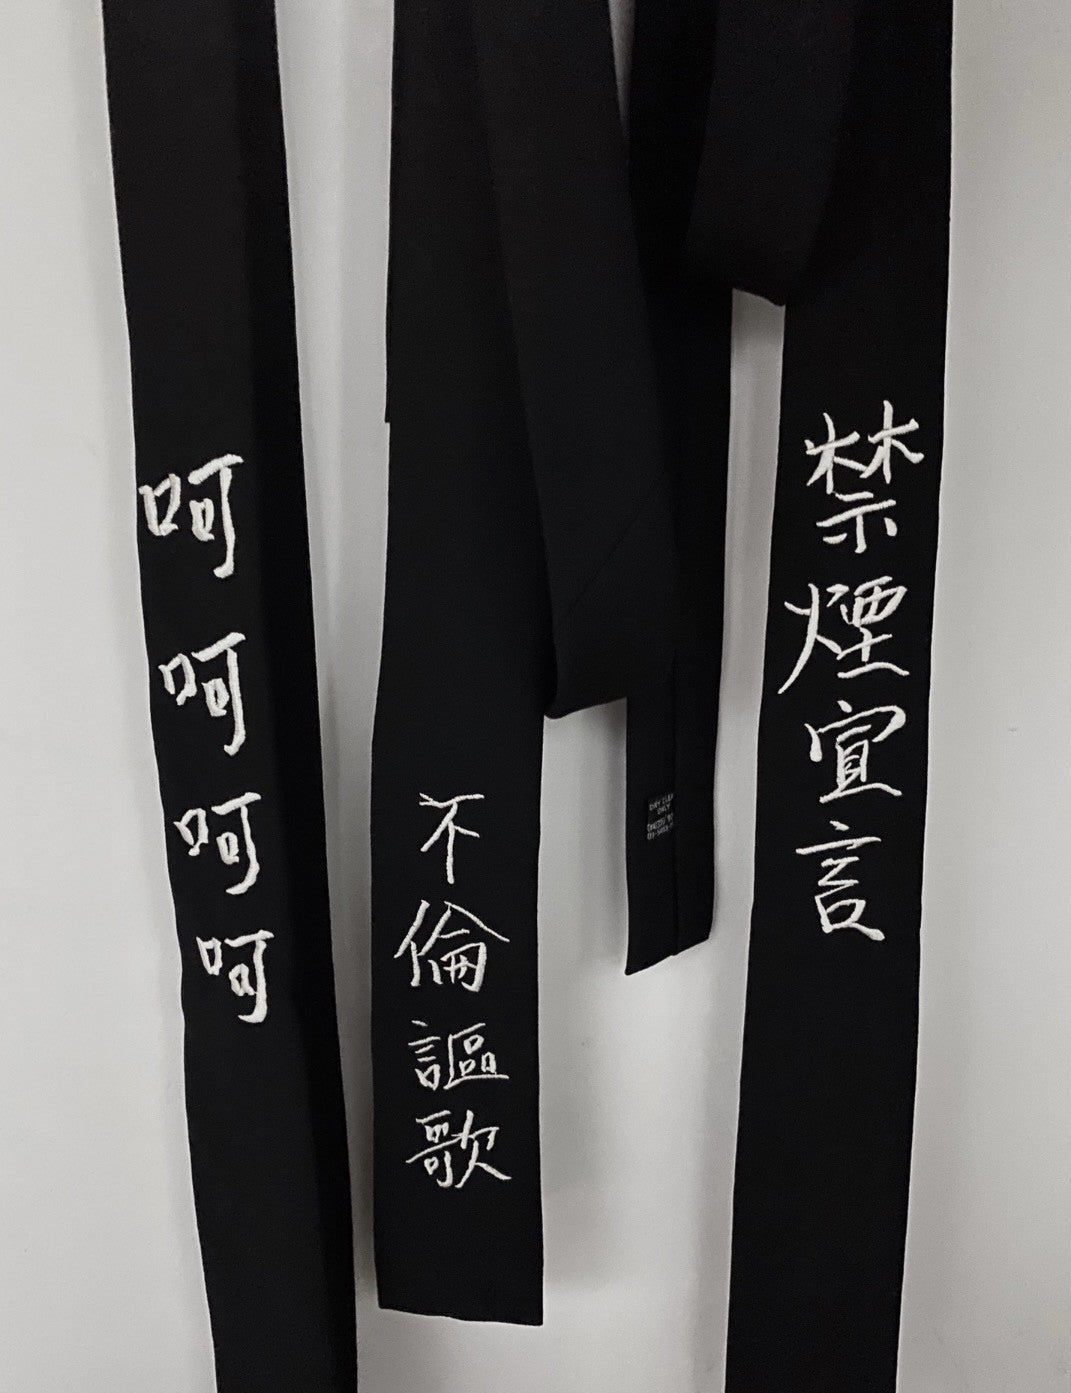 呵呵呵呵
不倫謳歌
禁煙宣言
DRY CLEAN
ONLY